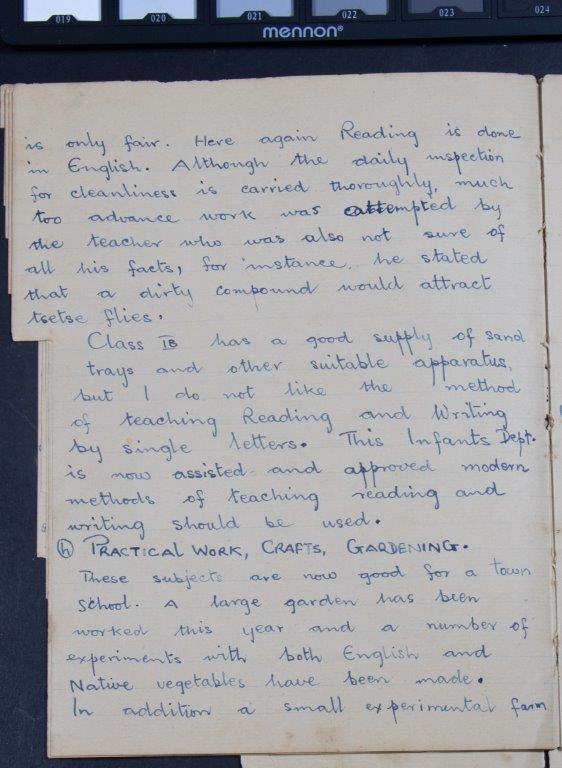 019
020
021
022
023
024
mennon®
is only fair. Here again Reading is done
in English. Although the daily inspection
for cleanliness is carried thoroughly, much
too advance work was attempted by
the teacher who was also not sure of
all his facts, for instance, he stated
that a dirty compound would attract
tsetse flies.
Class IB has a good supply of sand
trays and other suitable apparatus,
but I do not like the method
of teaching Reading and Writing
by single letters. This Infants Dept.
is now assisted and approved modern
methods of teaching reading and
writing should be used.
(h) PRACTICAL WORK, CRAFTS, GARDENING.
These subjects are now good for a town
School. A large garden has been
worked this year and a number of
experiments with both English and
Native vegetables have been made.
In addition a small experimental farm